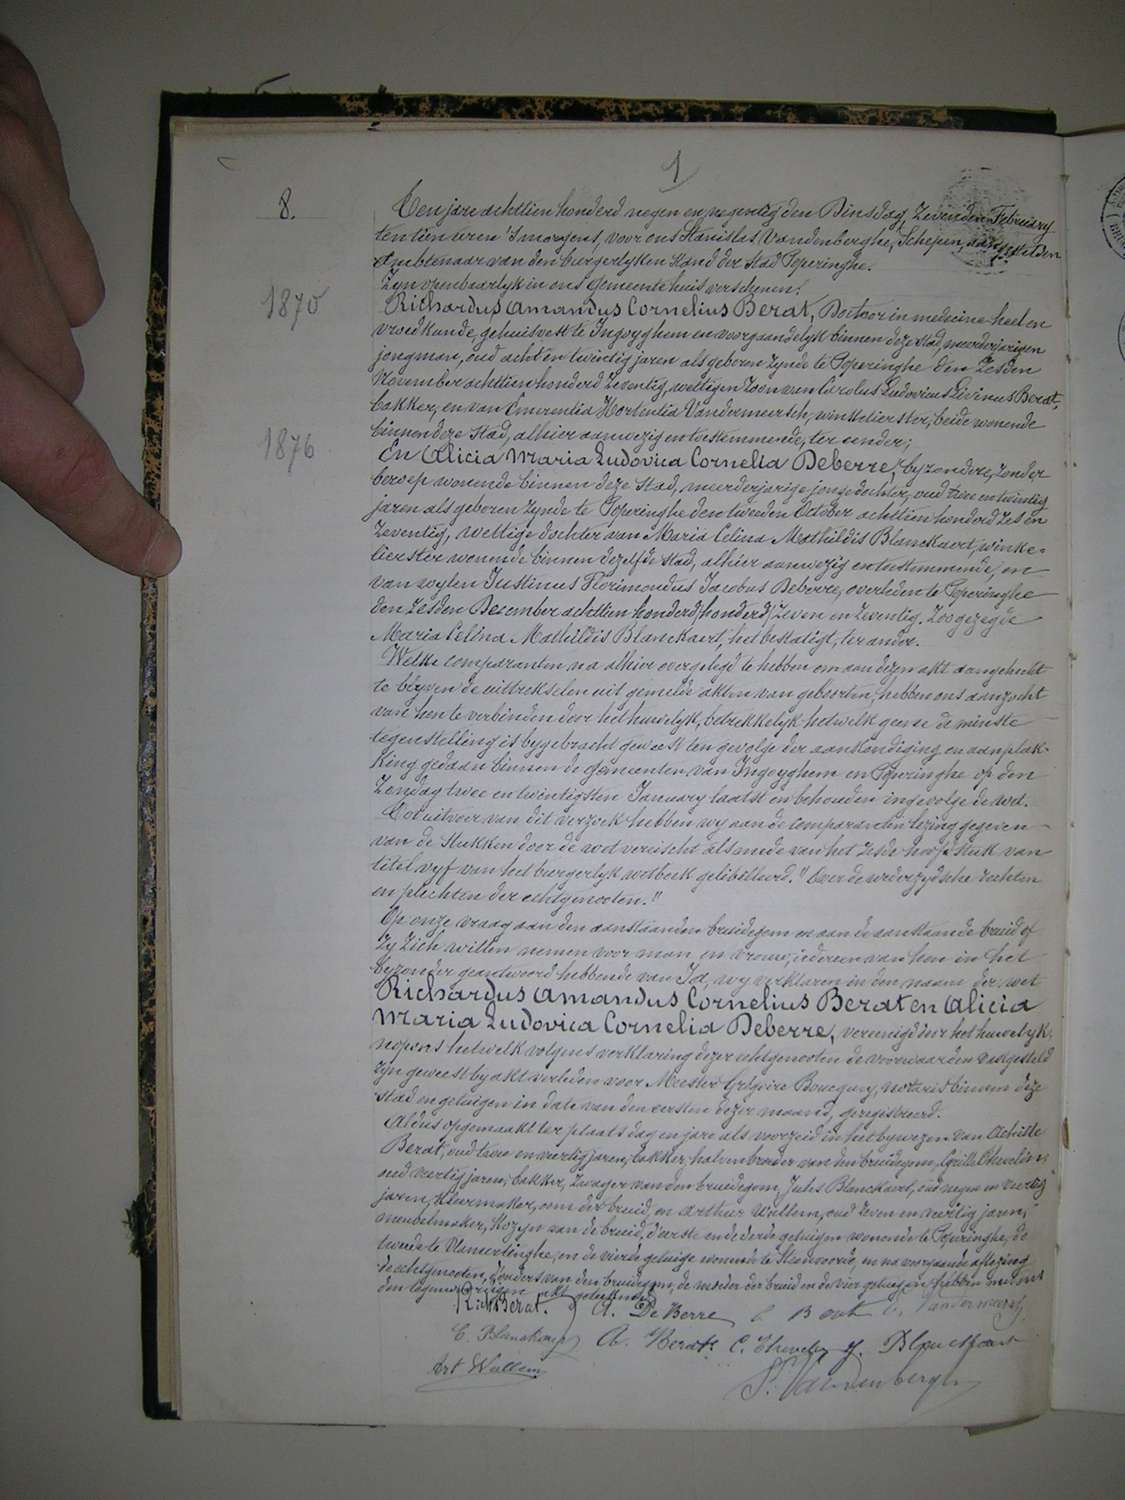 1
8.
Ten jare achttien honderd negen en negentig den Dinsdag, Zevenden February
ten tien uren 's morgens, voor ons Stanislas Vandenberghe, Schepen, aangestelden
Ambtenaar van den burgerlyken Stand der Stad Poperinghe.
Zyn openbaarlyk in ons Gemeentehuis verschenen:
1870
Richardus Amandus Cornelius Berat, Doctoor in medecine heel en
vroedkunde, gehuisvest te Ingoyghem en voorgaandelyk binnen deze stad, meerderjarigen
jongman, oud acht en twintig jaren als geboren zynde te Poperinghe den Zesden
November achttien honderd Zeventig, wettigen Zoon van Carolus Ludovicus Livinus Berat,
bakker, en van Emerentia Hortentia Vandermeersch, winkelierster, beide wonende
binnen deze Stad, alhier aanwezig en toestemmende, ter eender;
1876
En Alicia Maria Ludovica Cornelia Deberre, byzondere, zonder
beroep wonende binnen deze Stad, meerderjarige jonge dochter, oud twee en twintig
jaren als geboren zynde te Poperinghe den tweeden October achttien honderd Zes en
Zeventig, wettige dochter van Maria Celina Mathildis Blanckaert, winke-
lierster wonende binnen dezelfde stad, alhier aanwezig en toestemmende, en
van wylen Justinus Florimondus Jacobus Deberre, overleden te Poperinghe
den Zesden December achttien honderd /honderd/ Zeven en Zeventig. Zoo gezegde
Maria Celina Mathildis Blanckaert, het bestatigt, ter ander.
Welke comparanten na alhier overgelegd te hebben om aan dezen akt aangehecht
te blyven de uittrekselen uit gemelde akten van geboorten, hebben ons aanzocht
van hen te verbinden door het huwelyk, betrekkelyk hetwelk geene de minste
tegenstelling is bygebracht geweest ten gevolge der aankondiging en aanplak-
king gedaan binnen de Gemeenten van Ingoyghem en Poperinghe op den
Zondag twee en twintigsten January laatst en behouden ingevolge de wet.
Tot uitvoer van dit verzoek hebben wy aan de comparanten lezing gegeven
van de Stukken door de wet vereischt alsmede van het zesde hoofdstuk van
titel vyf van het burgerlyk wetboek gelibelleerd: "Over de wederzydsche rechten
en plichten der echtgenooten."
Op onze vraag aan den aanstaanden bruidegom en aan de aanstaande bruid of
Zy Zich willen nemen voor man en vrouw, iedereen van hen in het
byzonder geantwoord hebbende van Ja, wy verklaren in den naam der wet
Richardus Amandus Cornelius Berat en Alicia
Maria Ludovica Cornelia Deberre, vereenigd door het huwelyk.
nopens hetwelk volgens verklaring dezer echtgenooten de voorwaarden vastgesteld
zyn geweest by akt verleden voor Meester Grégoire Boucquey, notaris binnen deze
stad en getuigen in date van den eersten dezer maand, geregistreerd.
Aldus opgemaakt ter plaats dag en jare als voorzeid in het bywezen van Achille
Berat, oud twee en veertig jaren, bakker, halven broeder van den bruidegom, Cyrille Thevelin,
oud veertig jaren, bakker, Zwager van den bruidegom, Jules Blanckaert, oud negen en veertig
jaren, kleermaker, oom der bruid, en Arthur Wullem, oud Zeven en veertig jaren,
meubelmaker, Kozyn van de bruid, d'eerste en de derde getuigen wonende te Poperinghe, de
tweede te Vlamertinghe, en de vierde getuige wonende te Steenvoorde, en na voorgaande aflezing
de echtgenooten, d'ouders van den bruidegom, de moeder der bruid en de vier getuigen hebben met ons
den tegenwoordigen akt geteekend.
Rich Berat. A. De Berre Berat Vandermeersch
C. Blanckaert A. Berat C. Thevelin J. Blanckaert
Art Wullem
S. Vandenberghe